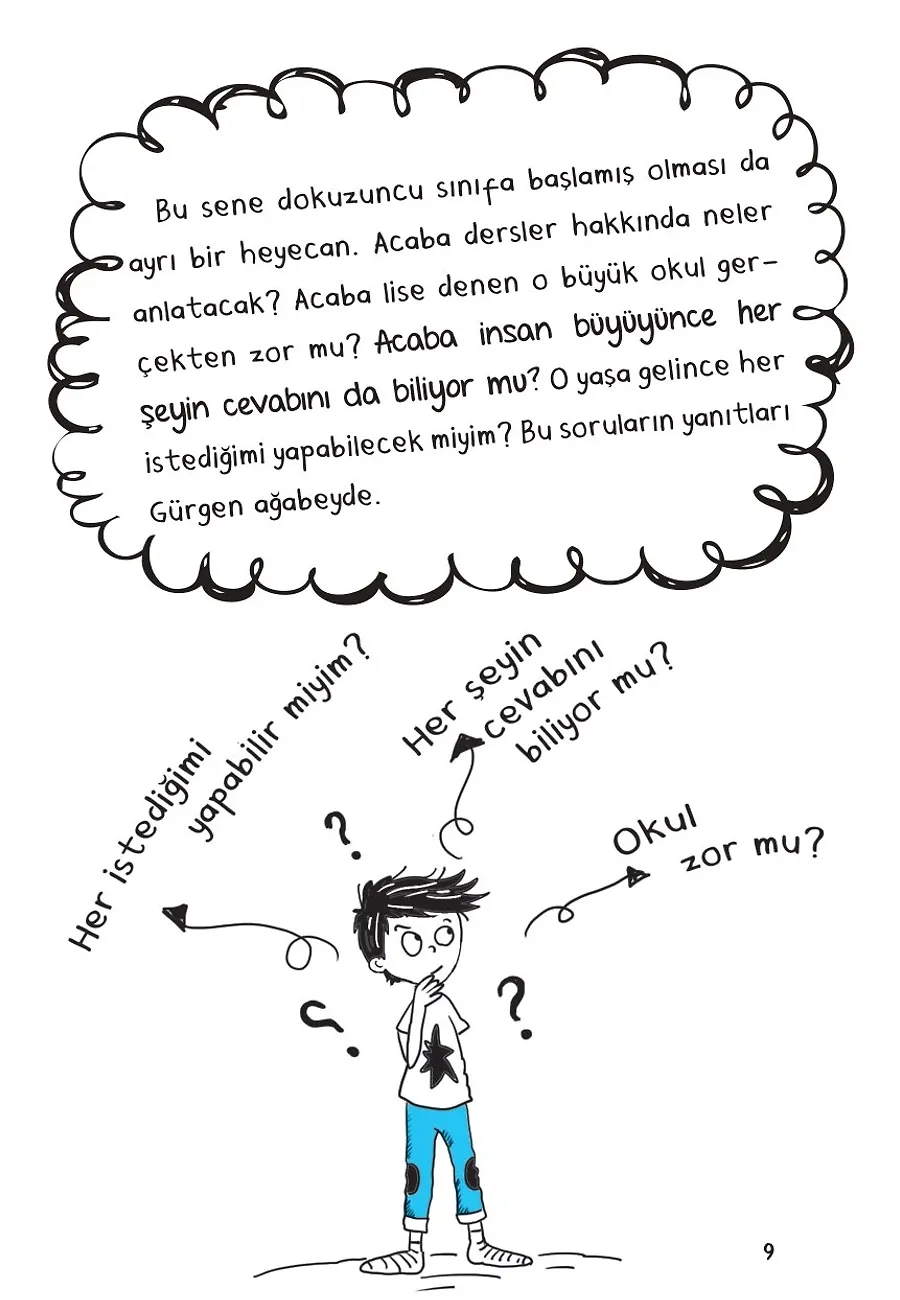 Bu sene dokuzuncu sınıfa başlamış olması da
ayrı bir heyecan. Acaba dersler hakkında neler
anlatacak? Acaba lise denen o büyük okul ger-
çekten zor mu? Acaba insan büyüyünce her
şeyin cevabını da biliyor mu? O yaşa gelince her
istediğimi yapabilecek miyim? Bu soruların yanıtları
Gürgen ağabeyde.
Her istediğimi
yapabilir miyim?
Her şeyin
cevabını
biliyor mu?
Okul
zor mu?
?
?
?
9